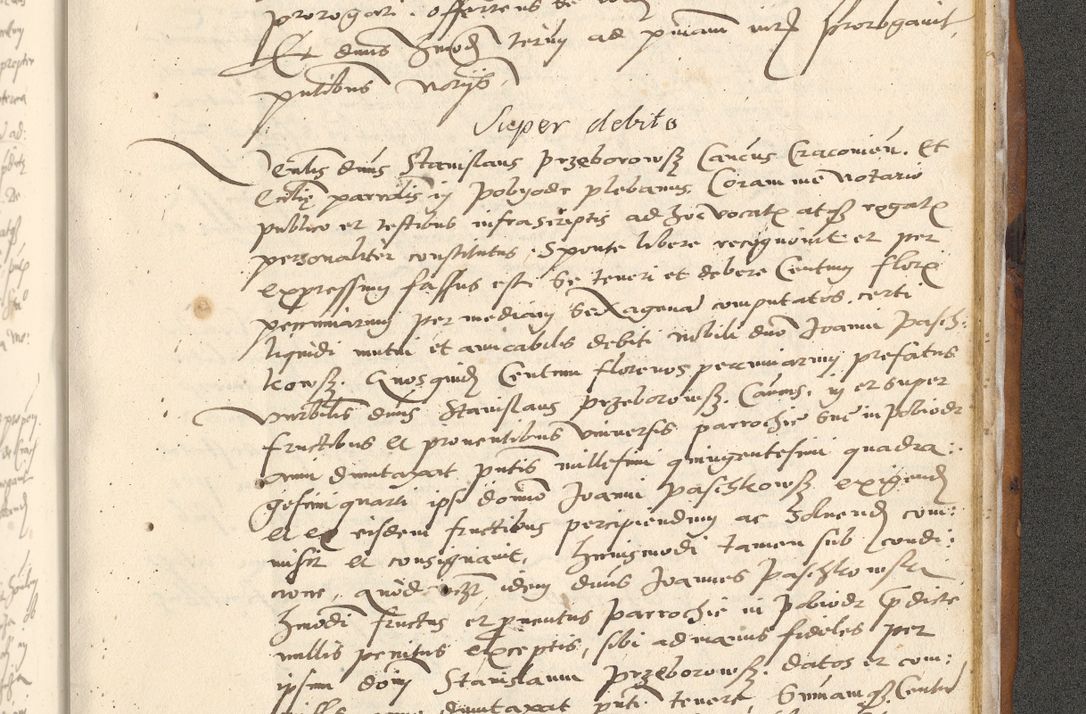 prorogari, offerens se
Et dnus hmoi terum ad primam iurj prorogavit,
pntibus notrijs
Super debito
Venlis dnus Stanislaus Przeborowsky Cancus Cracovien. Et
Ecclie parrolis in Pobyode plebanus Coram me Notario
publico et testibus infrascriptis ad hoc vocatis atque rogatis
personaliter constitutus. Sponte libere recognovit et per
expressum fassus est se teneri et debere Centum floren
pecuniarum per mediam sexagenam computatos. certi
liquidi mutui et amicabilis debiti nobili dno Joanni Pasch:
kowsky. Quosquidem Centum florenos pecuniarum prefatus
Venerabilis dnus Stanislaus Przeborowsky Cancus, in et super
fructibus et proventibus universis parrochie sue in Pobiode
anni duntaxat pntis millesimi quingentesimi quadra:
gesimi quarti ipsi domino Joanni Paschkowsky exigend
et ex eisdem fructibus percipiendum ac solvend com:
misit et consignavit, huiusmodi tamen sub condi:
cione, quod idem dnus Joannes Paschkowsky
hmodi fructus et proventus parrochie in Pobiode predicte
nullis penitus exceptis, sibi ad manus fideles per
ipsum dominum Stanislaum Przeborowsky datos et com:
duntaxat pnti tenere, summamque Centum